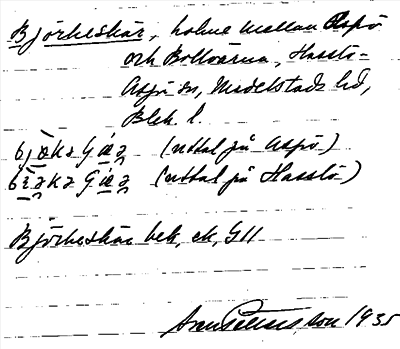 Björkeskär, holme mellan Aspö
och Bollöarna, Hasslö-
Aspö sn, Medelstads hd,
Blek. l.
(uttal på Aspö)
(uttal på Hasslö)
Björkeskär bek, ek, G11
Sven Petersson 1935